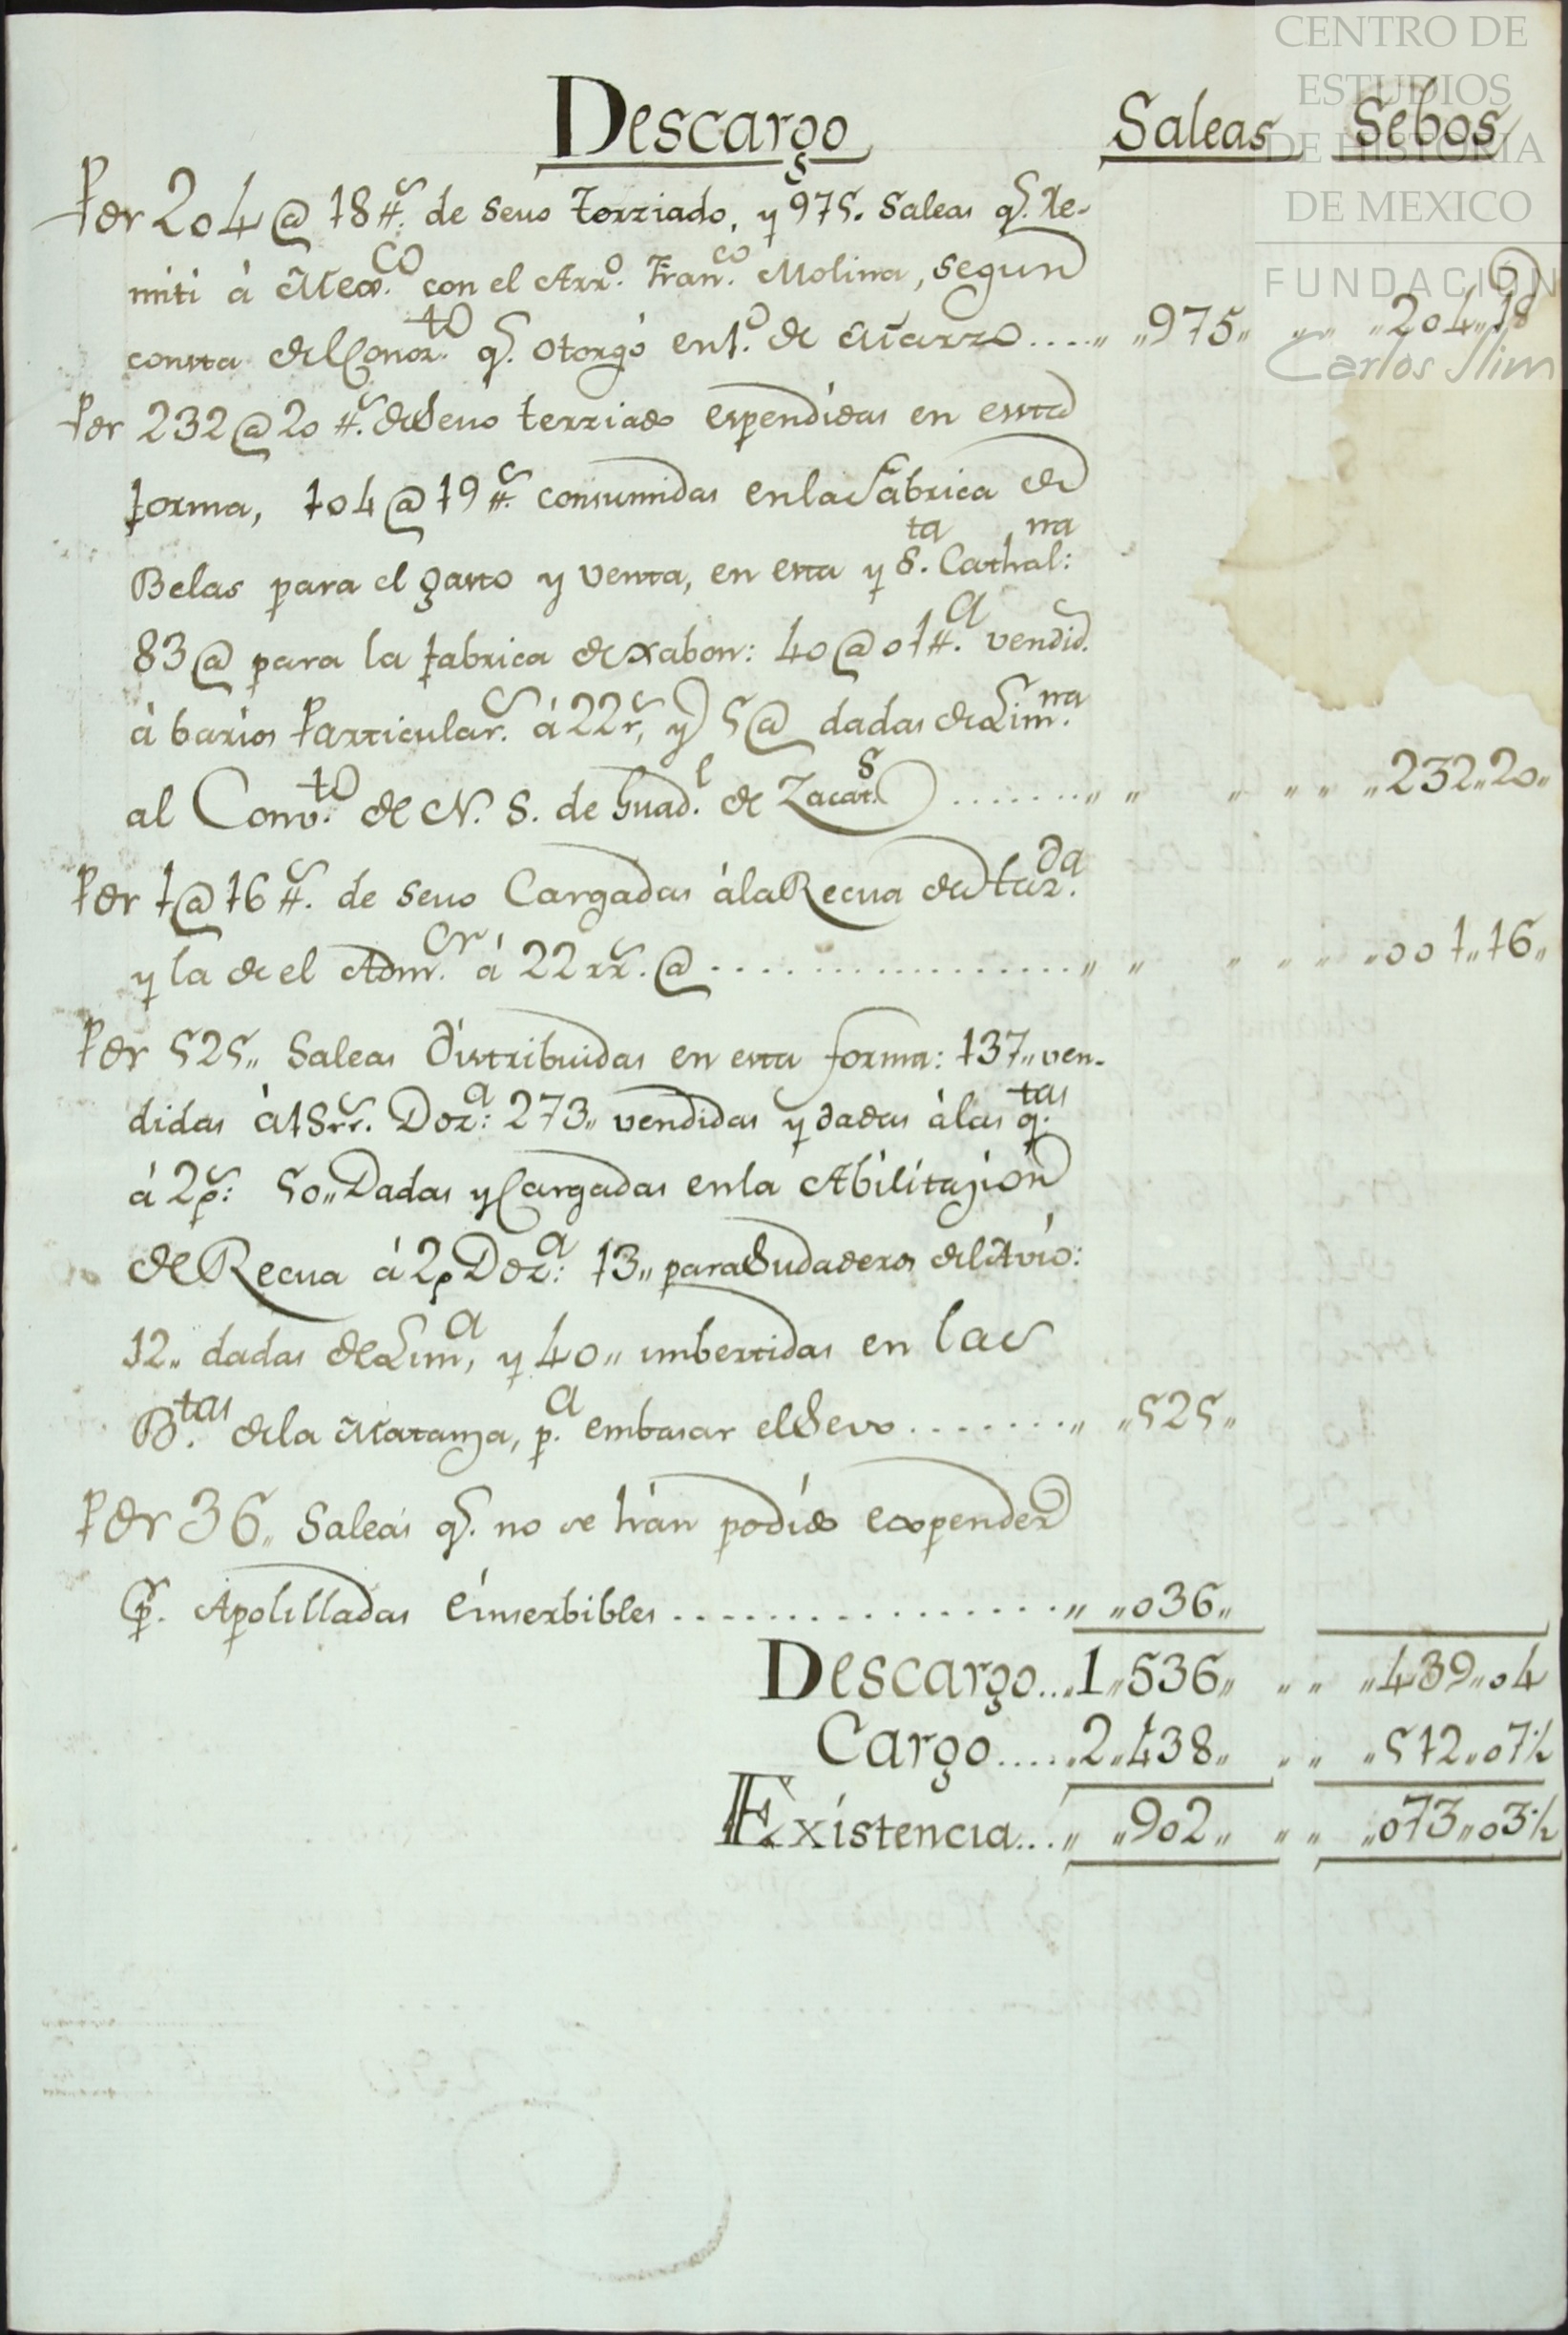 CENTRO DE
ESTUDIOS
DE HISTORIA
DE MEXICO
FUNDACIÓN
Carlos Slim
Descargo Saleas Sebos
Por 204 @ 18 ##.s de sevo terziado, y 975. Saleas q.e Re-
miti à Mex.co con el Arr.o Fran.co Molina, segun
consta del Conoz.to q.e otorgó en 1.o de Marzo.... „ „975„ „ „ „204„18
Por 232 @ 20 ##.s de Sevo terziado espendidas en esta
forma, 104 @ 19 ##.s consumidas en la Fabrica de
Belas para el gasto y venta, en esta y S.ta Cathal:na
83 @ para la fabrica de xabon: 40 @ 01 ##.a vendid.s
à barios Particular.s á 22 r.s, y 5 @ dadas de Lim.na
al Conv.to de N. S. de Guad.e de Zacat.s ........ „ „ „ „ „ „232„20„
Por 1 @ 16 ##.s de sevo Cargadas á la Recua de
y la de el Adm.or á 22 rr.s @ .................... „ „ „ „ „ „001„16„
Por 525„ Saleas distribuidas en esta forma: 137„ ven-
didas à 18 rr.s Doz.a: 273„ vendidas y dadas à las q.tas
á 2 p.s: 50„ Dadas y Cargadas en la Abilitazion
de Recua á 2 p Doz.a: 13„ para Sudaderos del Avío:
12„ dadas de Lim.a, y 40„ imbertidas en las
B.tas de la Matanza, p.a embasar el Sevo ........ „ „525„
Por 36„ Saleas q.e no se hàn podido expender
p.r Apolilladas é inserbibles ................. „ „036„
Descargo... „1„536„ „ „ „439„04
Cargo..... „2„438„ „ „ „512„07½
Existencia... „ „902„ „ „ „073„03½